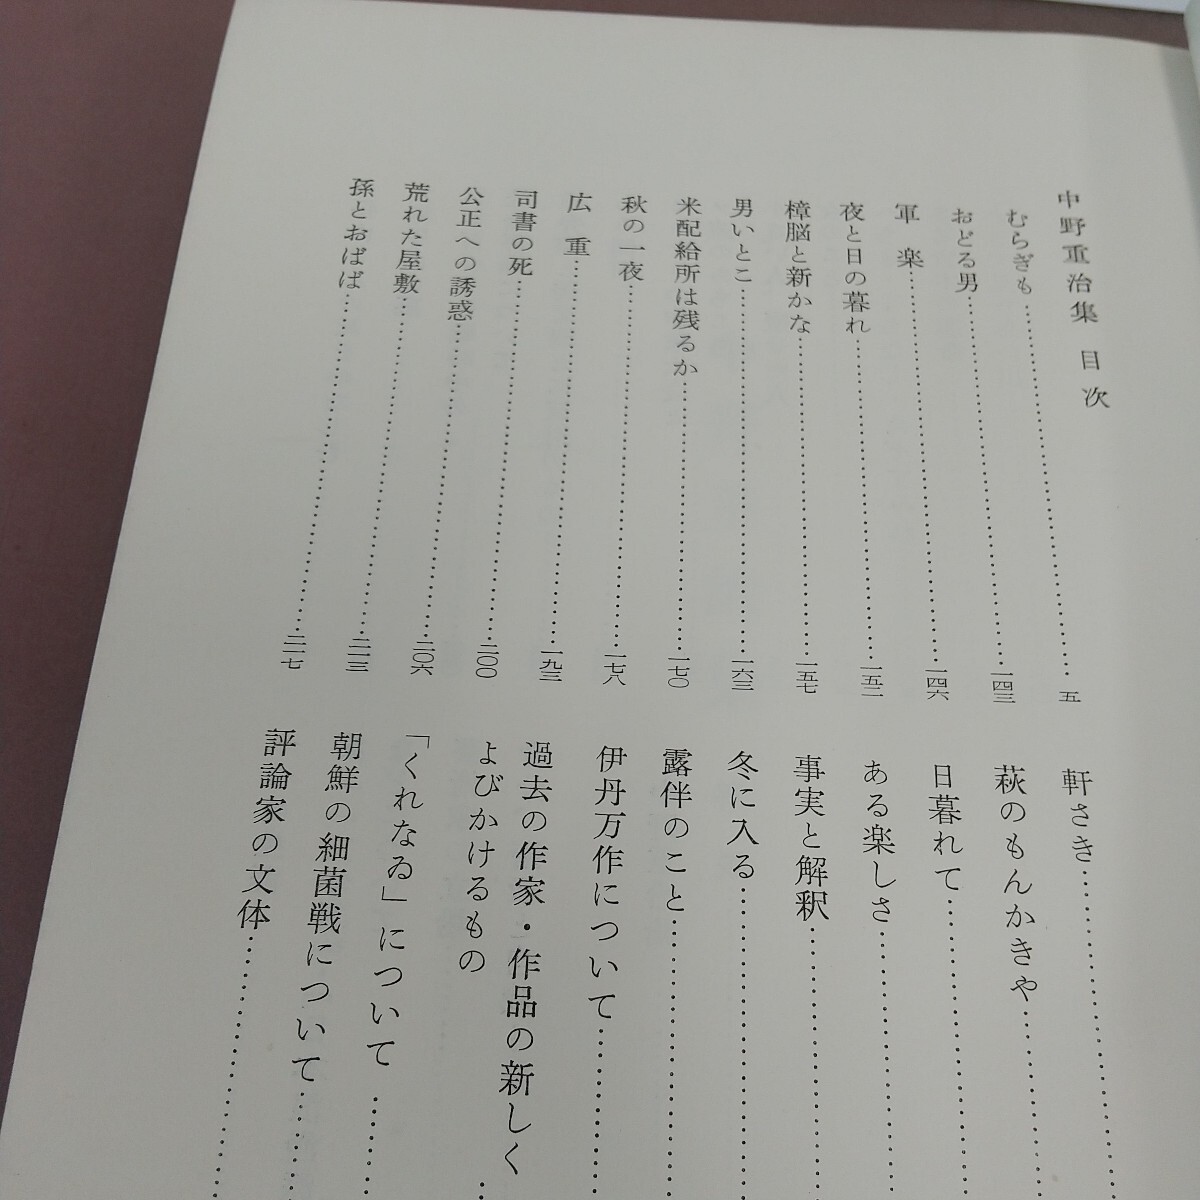 中野重治集 目次
むらぎも……五
おどる男……一四三
軍楽……一四六
夜と日の暮れ……一五二
樟脳と新かな……一五七
男いとこ……一六三
米配給所は残るか……一七〇
秋の一夜……一七八
広重……一九三
司書の死……二〇〇
公正への誘惑……二〇六
荒れた屋敷……二一三
孫とおばば……二一七
軒さき……
萩のもんかきや……
日暮れて……
ある楽しさ……
事実と解釈……
冬に入る……
露伴のこと……
伊丹万作について……
過去の作家・作品の新しく
よびかけるもの……
「くれなゐ」について……
朝鮮の細菌戦について……
評論家の文体……